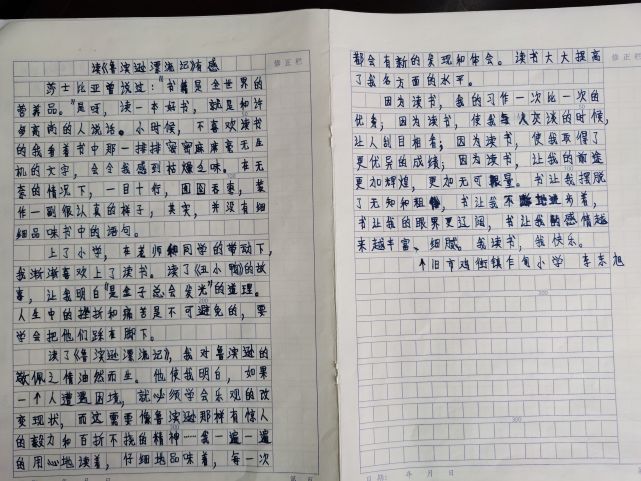 读《鲁滨逊漂流记》有感
修正栏
莎士比亚曾说过："书籍是全世界的
营养品。"是呀，读一本好书，就是和许
多高尚的人说话。小时候，不喜欢读书
的我看着书中那一排排密密麻麻毫无生
机的文字，会令我感到枯燥乏味。在无
奈的情况下，一目十行，囫囵吞枣，装
作一副很认真的样子，其实，并没有细
细品味书中的语句。
上了小学，在老师和同学的带动下，
我渐渐喜欢上了读书。读了《丑小鸭》的故
事，让我明白"是金子总会发光"的道理。
人生中的挫折和痛苦是不可避免的，要
学会把他们踩在脚下。
读了《鲁滨逊漂流记》，我对鲁滨逊的
敬佩之情油然而生。他使我明白，如果
一个人遭遇困境，就必须学会乐观的改
变现状，而这需要像鲁滨逊那样有惊人
的毅力和百折不挠的精神……我一遍一遍
的用心地读着，仔细地品味着，每一次
年 月 日
都会有新的发现和体会。读书大大提高
了我各方面的水平。
修正栏
因为读书，我的习作一次比一次的
优秀；因为读书，使我每次发言的时候，
让人刮目相看；因为读书，使我取得了
更优异的成绩；因为读书，让我的前途
更加辉煌，更加无可限量。书让我摆脱
了无知和粗俗，书让我不断进步着，
书让我的眼界更辽阔，书让我的感情越
来越丰富、细腻。我读书，我快乐。
个旧市鸡街镇乍甸小学 李东旭
日期： 年 月 日